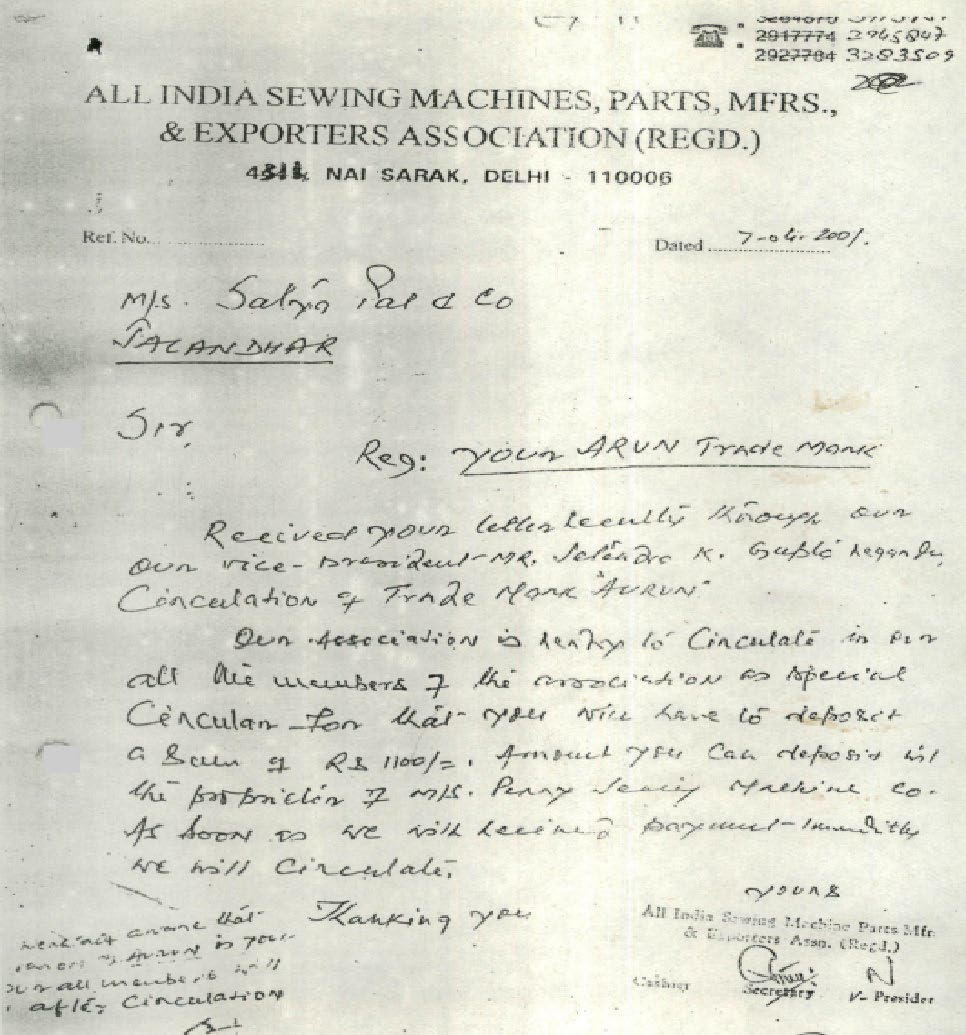 2917774 2965847
2927784 3283509
ALL INDIA SEWING MACHINES, PARTS, MFRS.,
& EXPORTERS ASSOCIATION (REGD.)
NAI SARAK, DELHI - 110006
Ref. No.
Dated 7-04-2001.
M/s. Satya Pal & Co
JALANDHAR
Sir,
Reg: your ARUN Trade Mark
Received your letter through our
our vice-president MR. K. Gupta
Circulation of Trade Mark
Our Association is ready to Circulate in our
all the members of the association as special
Circular for that you will have to deposit
a Sum of RS 1100/=. Amount you Can deposit
the of M/s. Machine Co.
As soon as we will payment
we will Circulate.
Thanking you
yours
All India Sewing Machine Parts Mfr.
& Exporters Assp. (Regd.)
Cashier Secretary V- Presider
that
ARUN is your
all members will
after Circulation